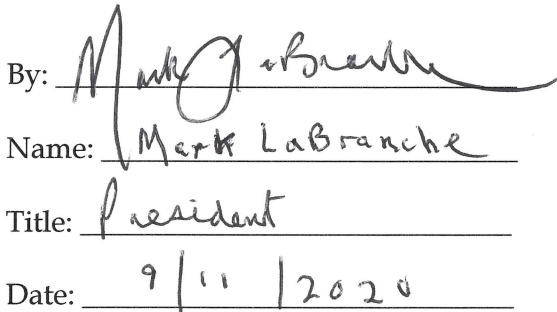 By: Mark LaBranche
Name: Mark LaBranche
Title: President
Date: 9/11/2020